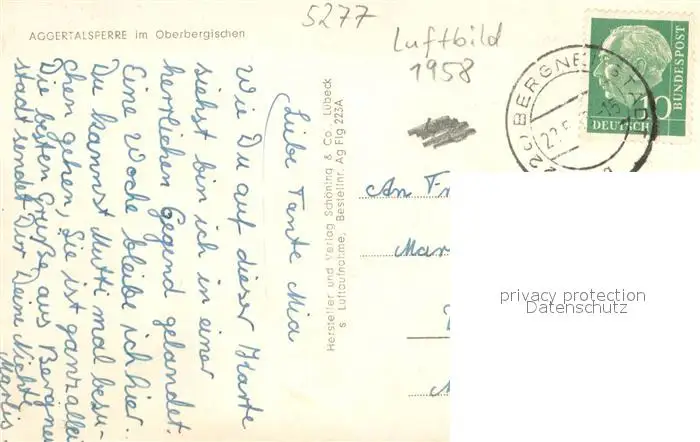 AGGERTALSPERRE im Oberbergischen
5277
Luftbild
1958
Liebe Tante Mia
Wie Du auf dieser Karte
siehst bin ich in einer
herrlichen Gegend gelandet.
Eine Woche bleibe ich hier.
Du kannst Mutti mal besu-
chen gehen, Sie ist ganz allei
Die besten Grüße aus Bergneu
stadt sendet Dir Deine Nichte
Marlis
Hersteller und Verlag Schöning & Co., Lübeck
s Luftaufnahme, Bestellnr. Ag Flg 223A
DEUTSCHE
BUNDESPOST
An
Mar
privacy protection
Datenschutz